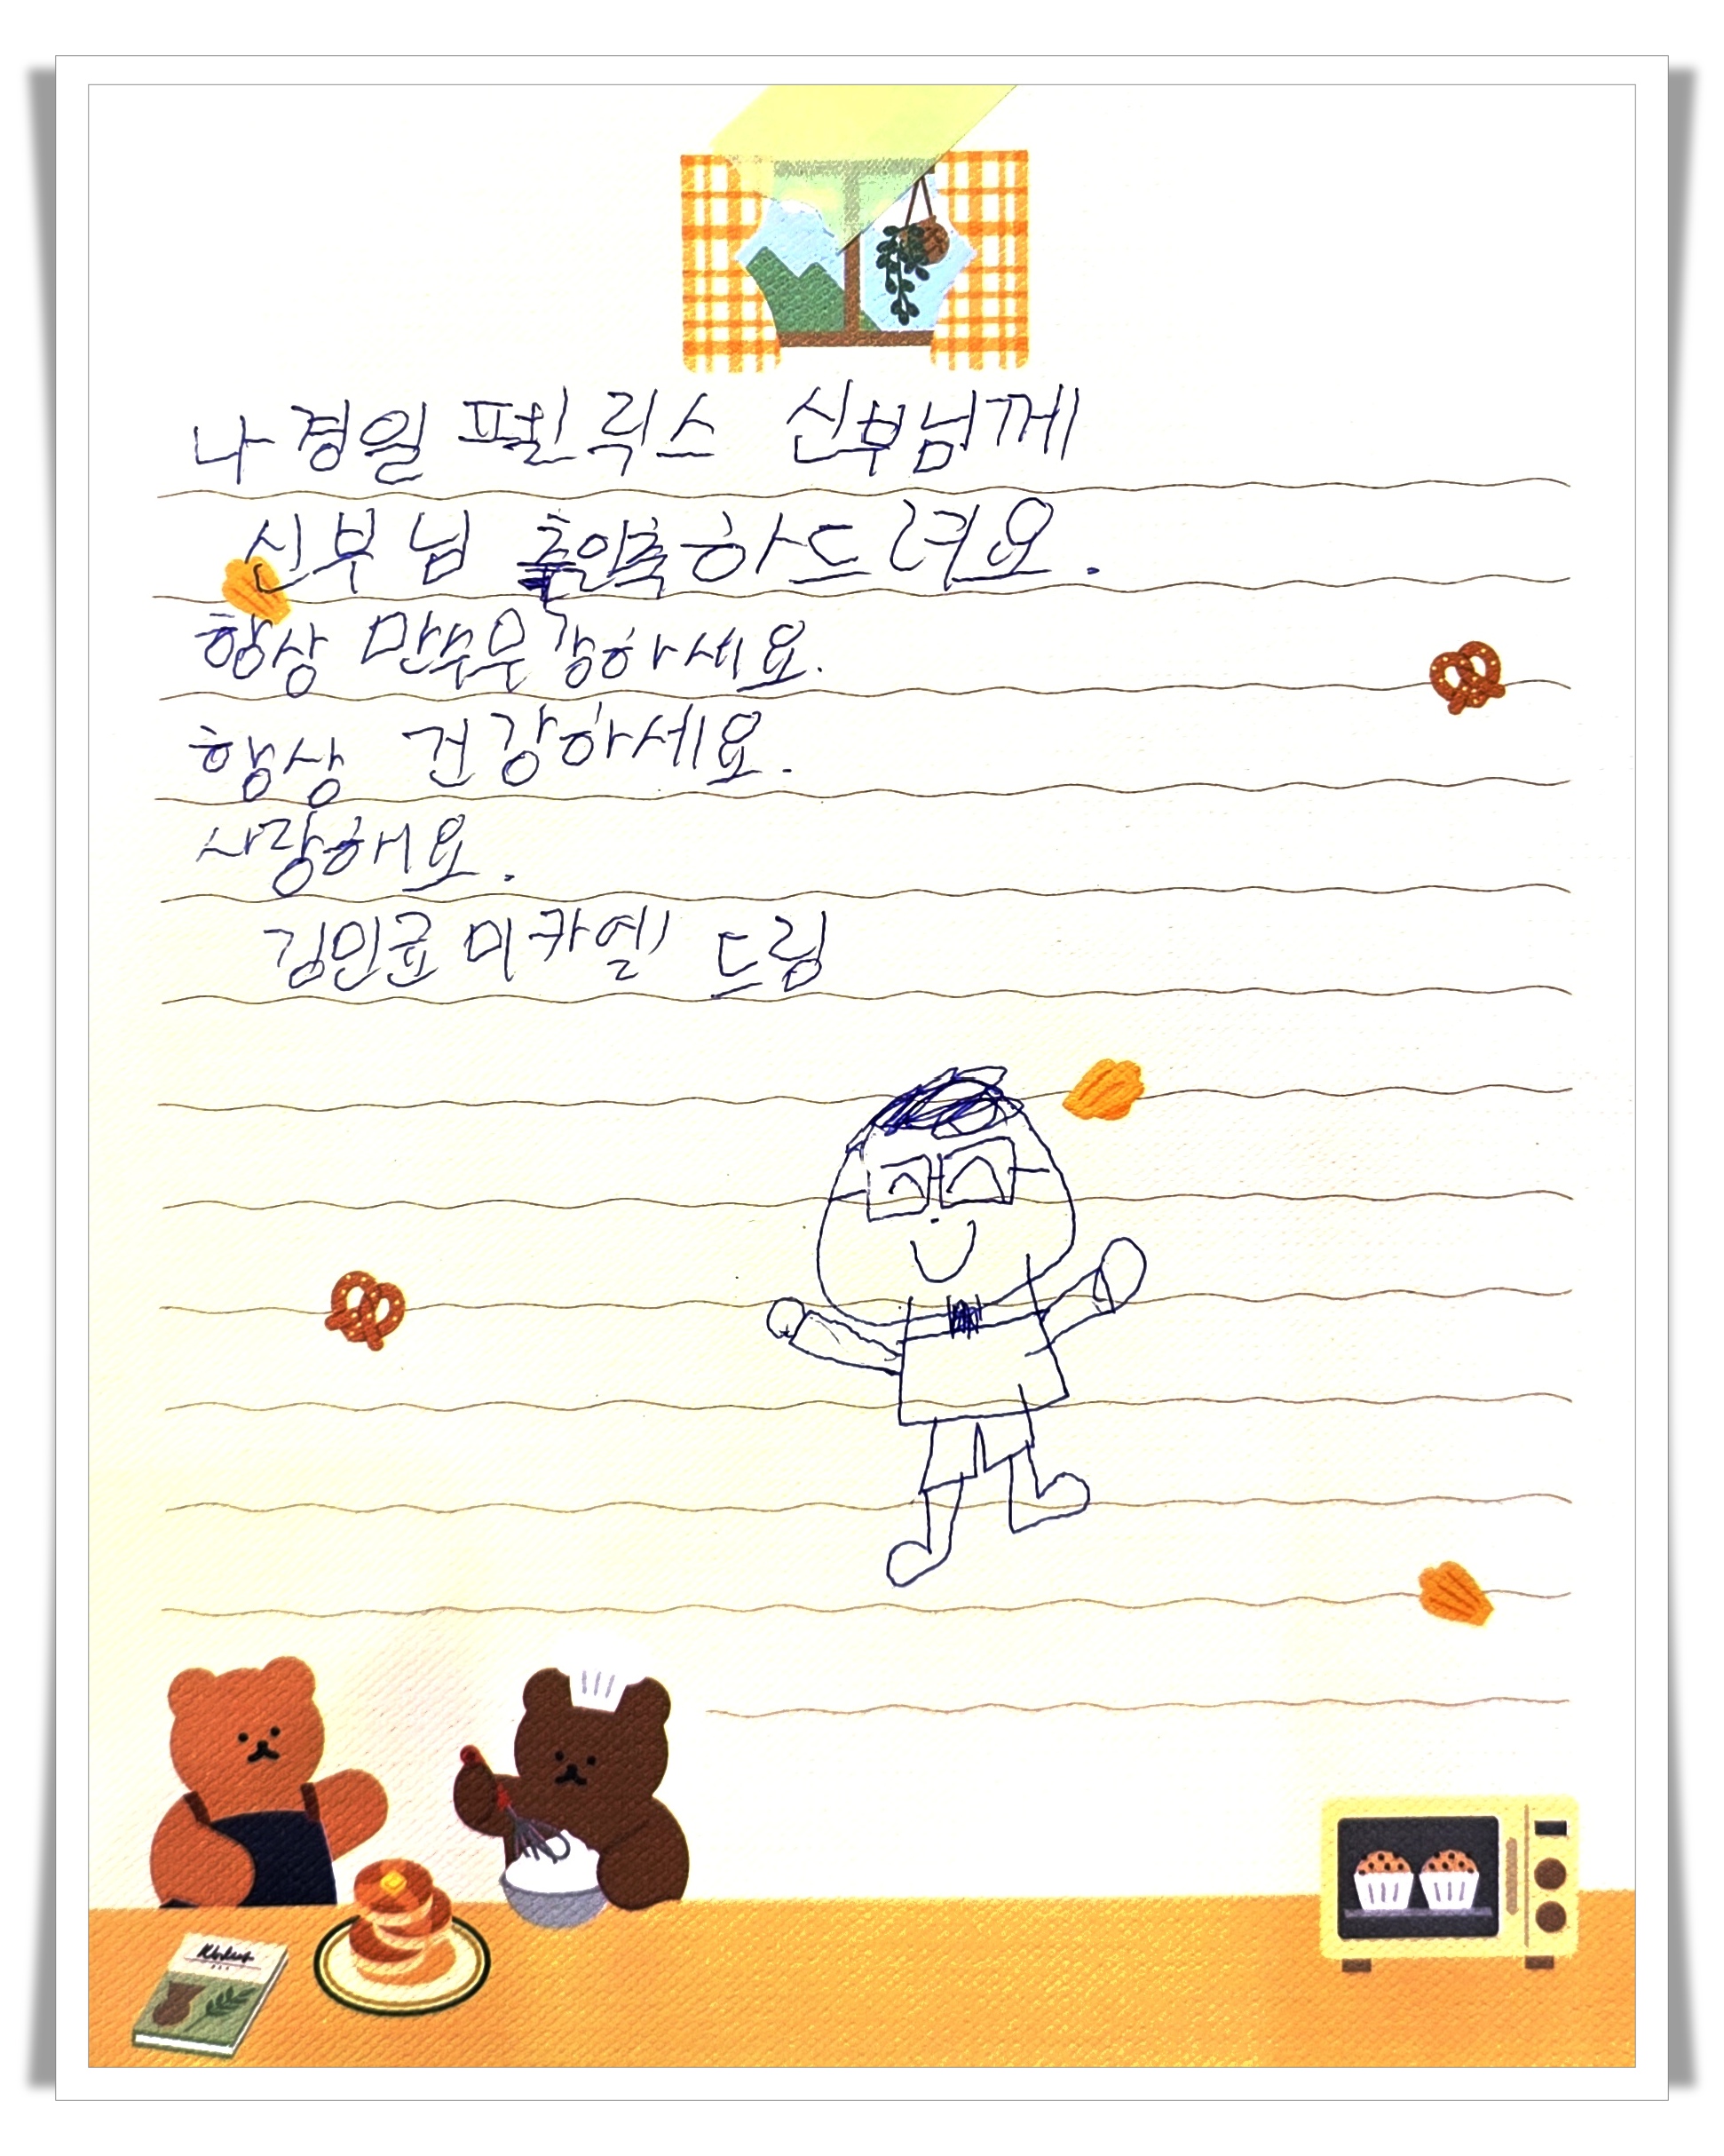 나경일 펠릭스 신부님께
신부님 축일축하드려요.
항상 만수무강하세요.
항상 건강하세요.
사랑해요.
김민균 미카엘 드림